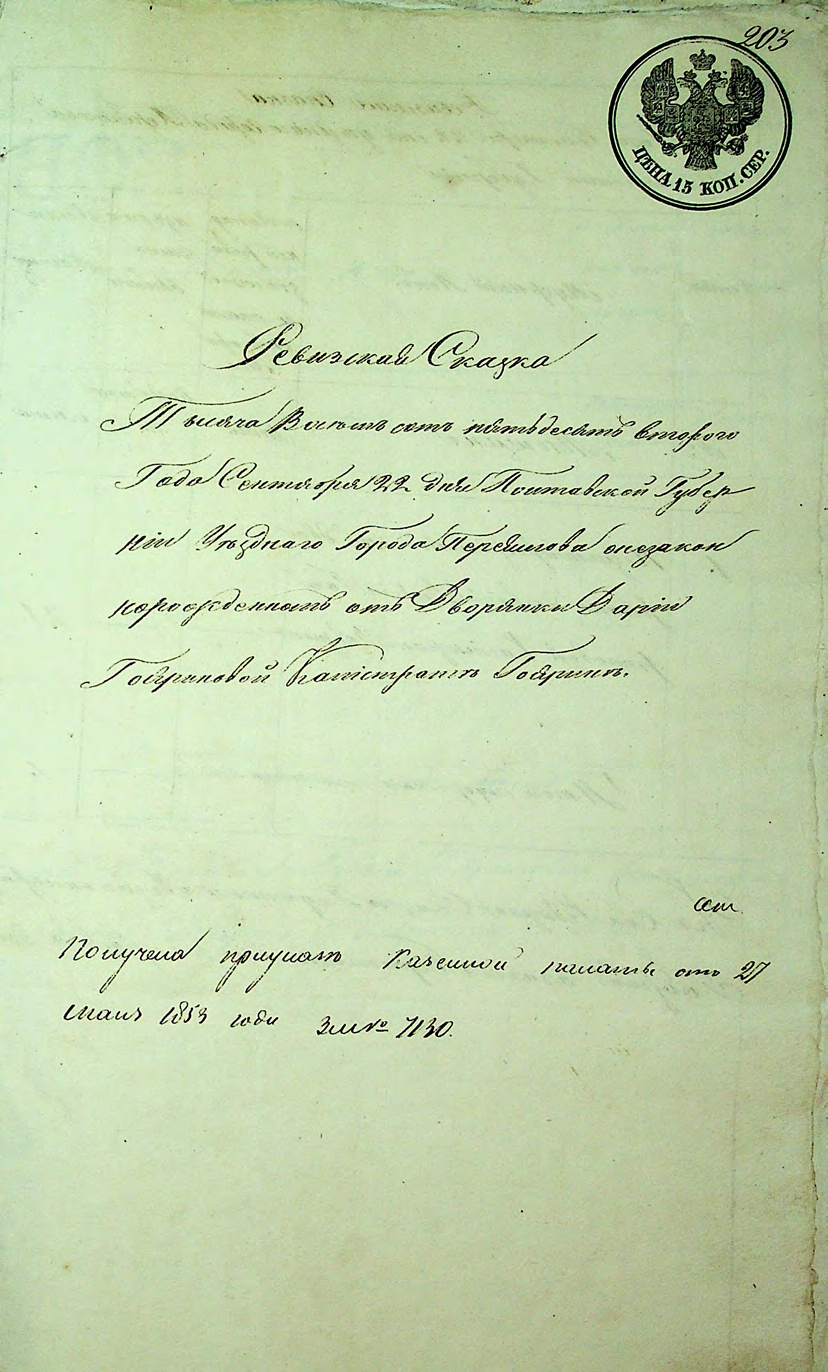 203
ЦѢНА 15 КОП. СЕР.
Ревизская Сказка
Тысяча Восемь сотъ пятьдесятъ втораго
Года Сентября 22 дня Полтавской Губер
ніи Уѣзднаго Города Переяслова онезакон
норожденномъ отъ Дворянки Даріи
Гостриновой
Получена
Казенной палаты отъ 27
1853 года № 7130.